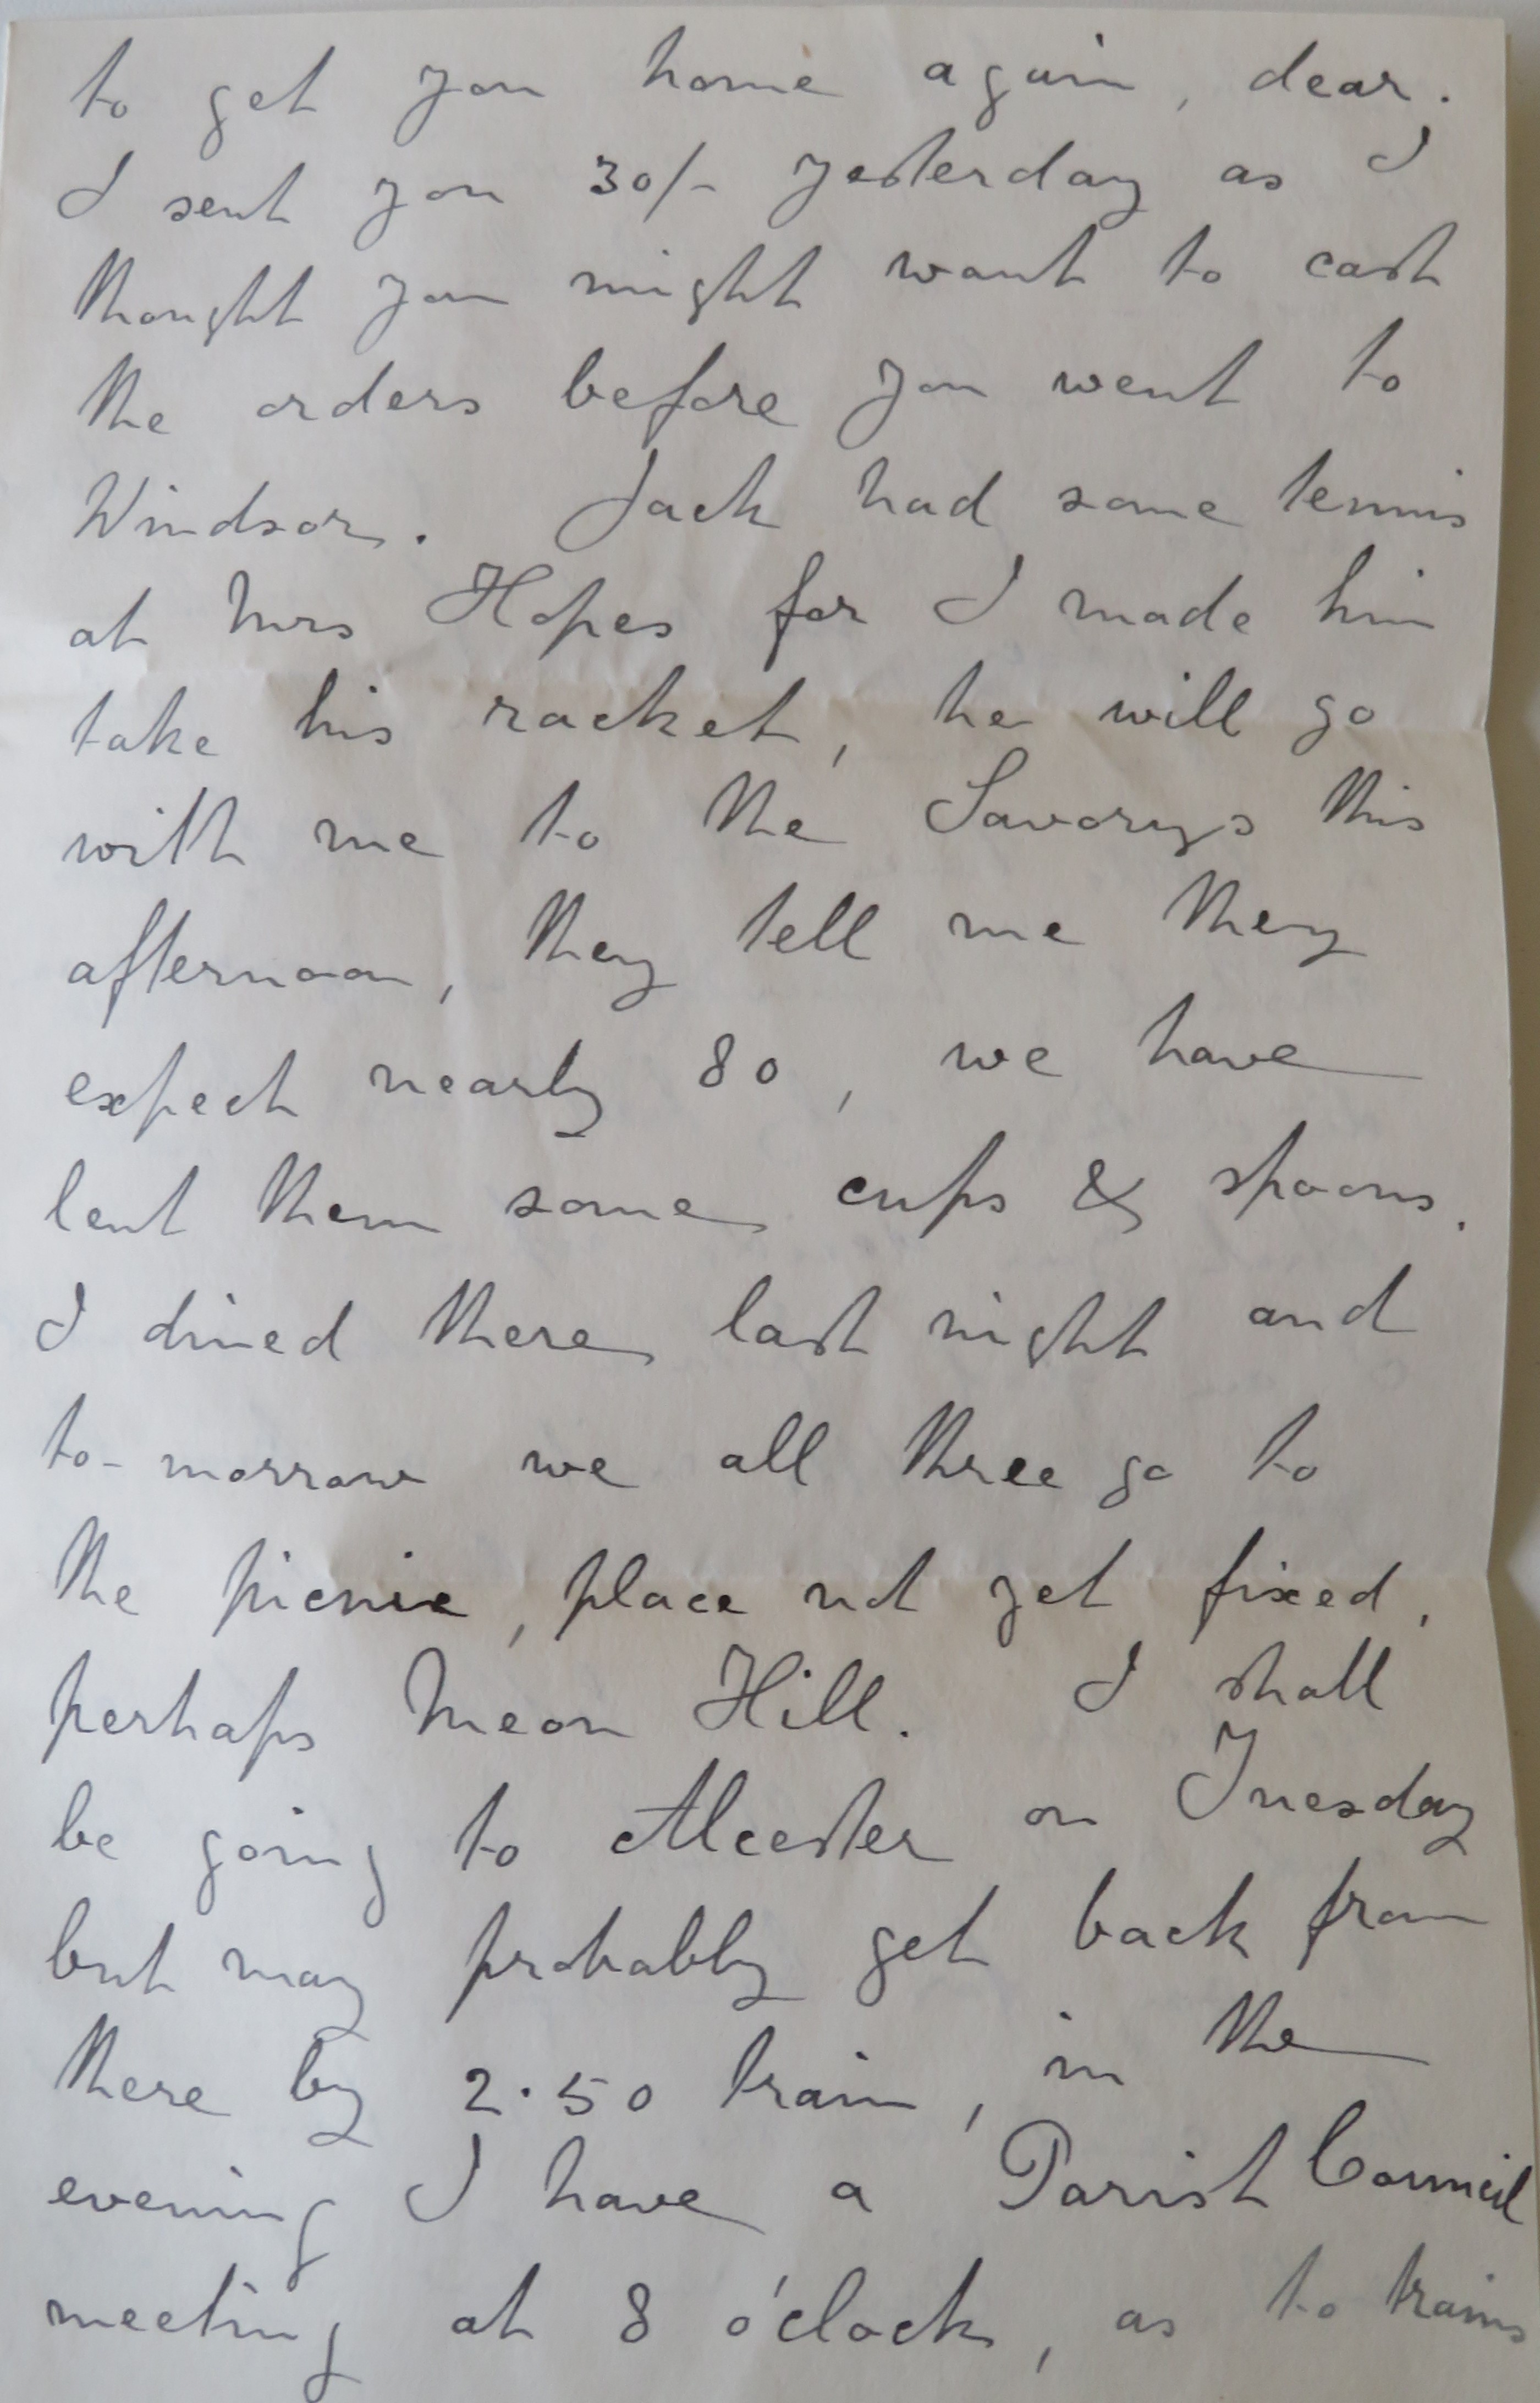 to get you home again, dear.
I sent you 30/- yesterday as I
thought you might want to cash
the orders before you went to
Windsor. Jack had some tennis
at Mrs Hopes for I made him
take his racket, he will go
with me to the Savorys this
afternoon, they tell me they
expect nearly 80, we have
lent them some cups & spoons.
I dined there last night and
to-morrow we all three go to
the picnic, place not yet fixed,
perhaps Meon Hill. I shall
be going to Alcester on Tuesday
but may probably get back from
there by 2.50 train, in the
evening I have a Parish Council
meeting at 8 o'clock, as to trains